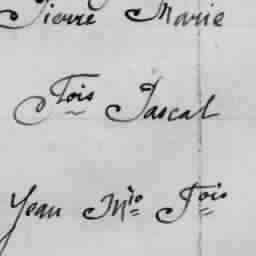 Pierre Marie
Fois Pascal
Jean Mie Fois